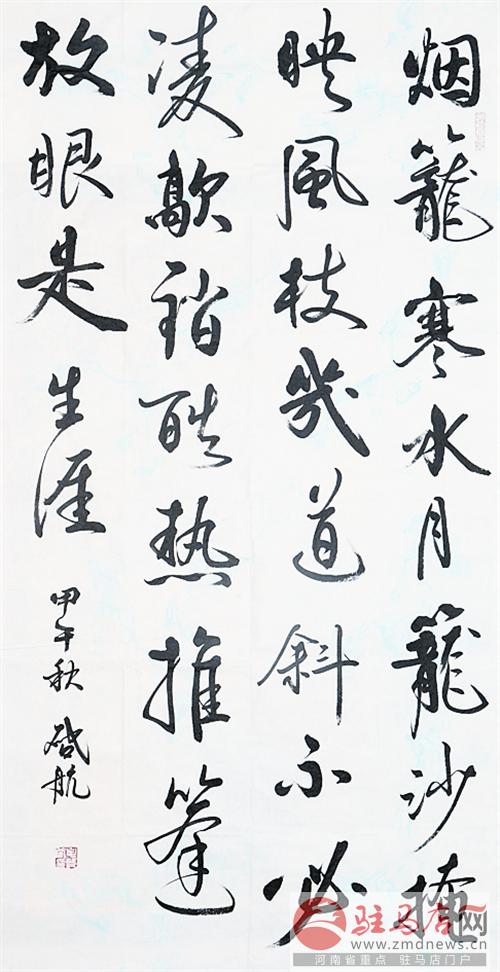 烟籠寒水月籠沙掩
映風枝幾道斜不必
凌歊銷酷热推篷
放眼是生涯
甲午秋 啟航
驻马店网
www.zmdnews.cn
河南省重点 驻马店门户